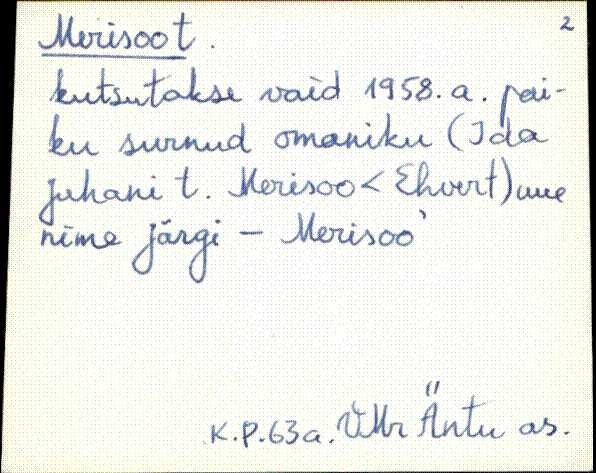 2
Merisoot.
kutsutakse vaid 1958.a. pai-
ku surnud omaniku (Ida
Juhani t. Merisoo < Ehvert) uue
nime järgi – Merisoo'
K.P. 63a. VMr Äntu as.